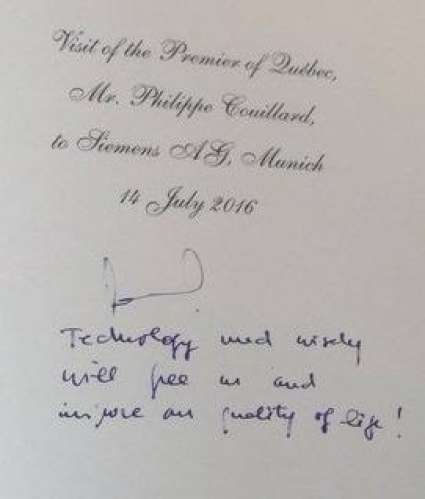 Visit of the Premier of Québec,
Mr. Philippe Couillard,
to Siemens AG, Munich
14 July 2016
Technology used wisely
will free us and
improve our quality of life!